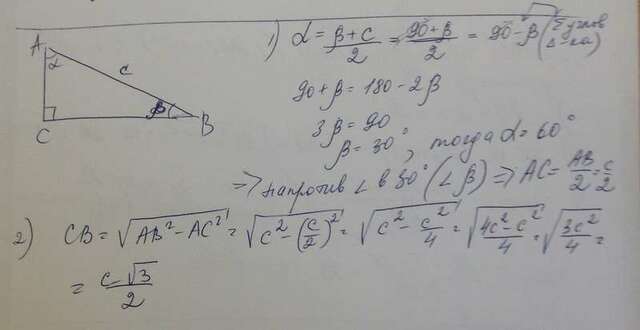 1) α = (β+C)/2 = (90+β)/2 = 90-β (Σ углов Δ-ка)
A
α
c
90+β = 180-2β
β
C
B
3β = 90
β = 30°, тогда α = 60°
=> напротив ∠ в 30° (∠β) => AC = AB/2 = c/2
2) CB = √(AB²-AC²) = √(c²-(c/2)²) = √(c²-c²/4) = √((4c²-c²)/4) = √(3c²/4) =
= c√3/2